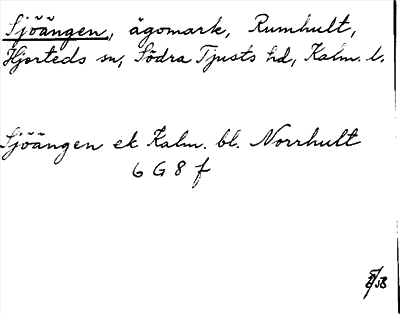 Sjöängen, ägomark, Rumhult,
Hjorteds sn, Södra Tjusts hd, Kalm. l.
Sjöängen ek Kalm. bl. Norrhult
6 G 8 f